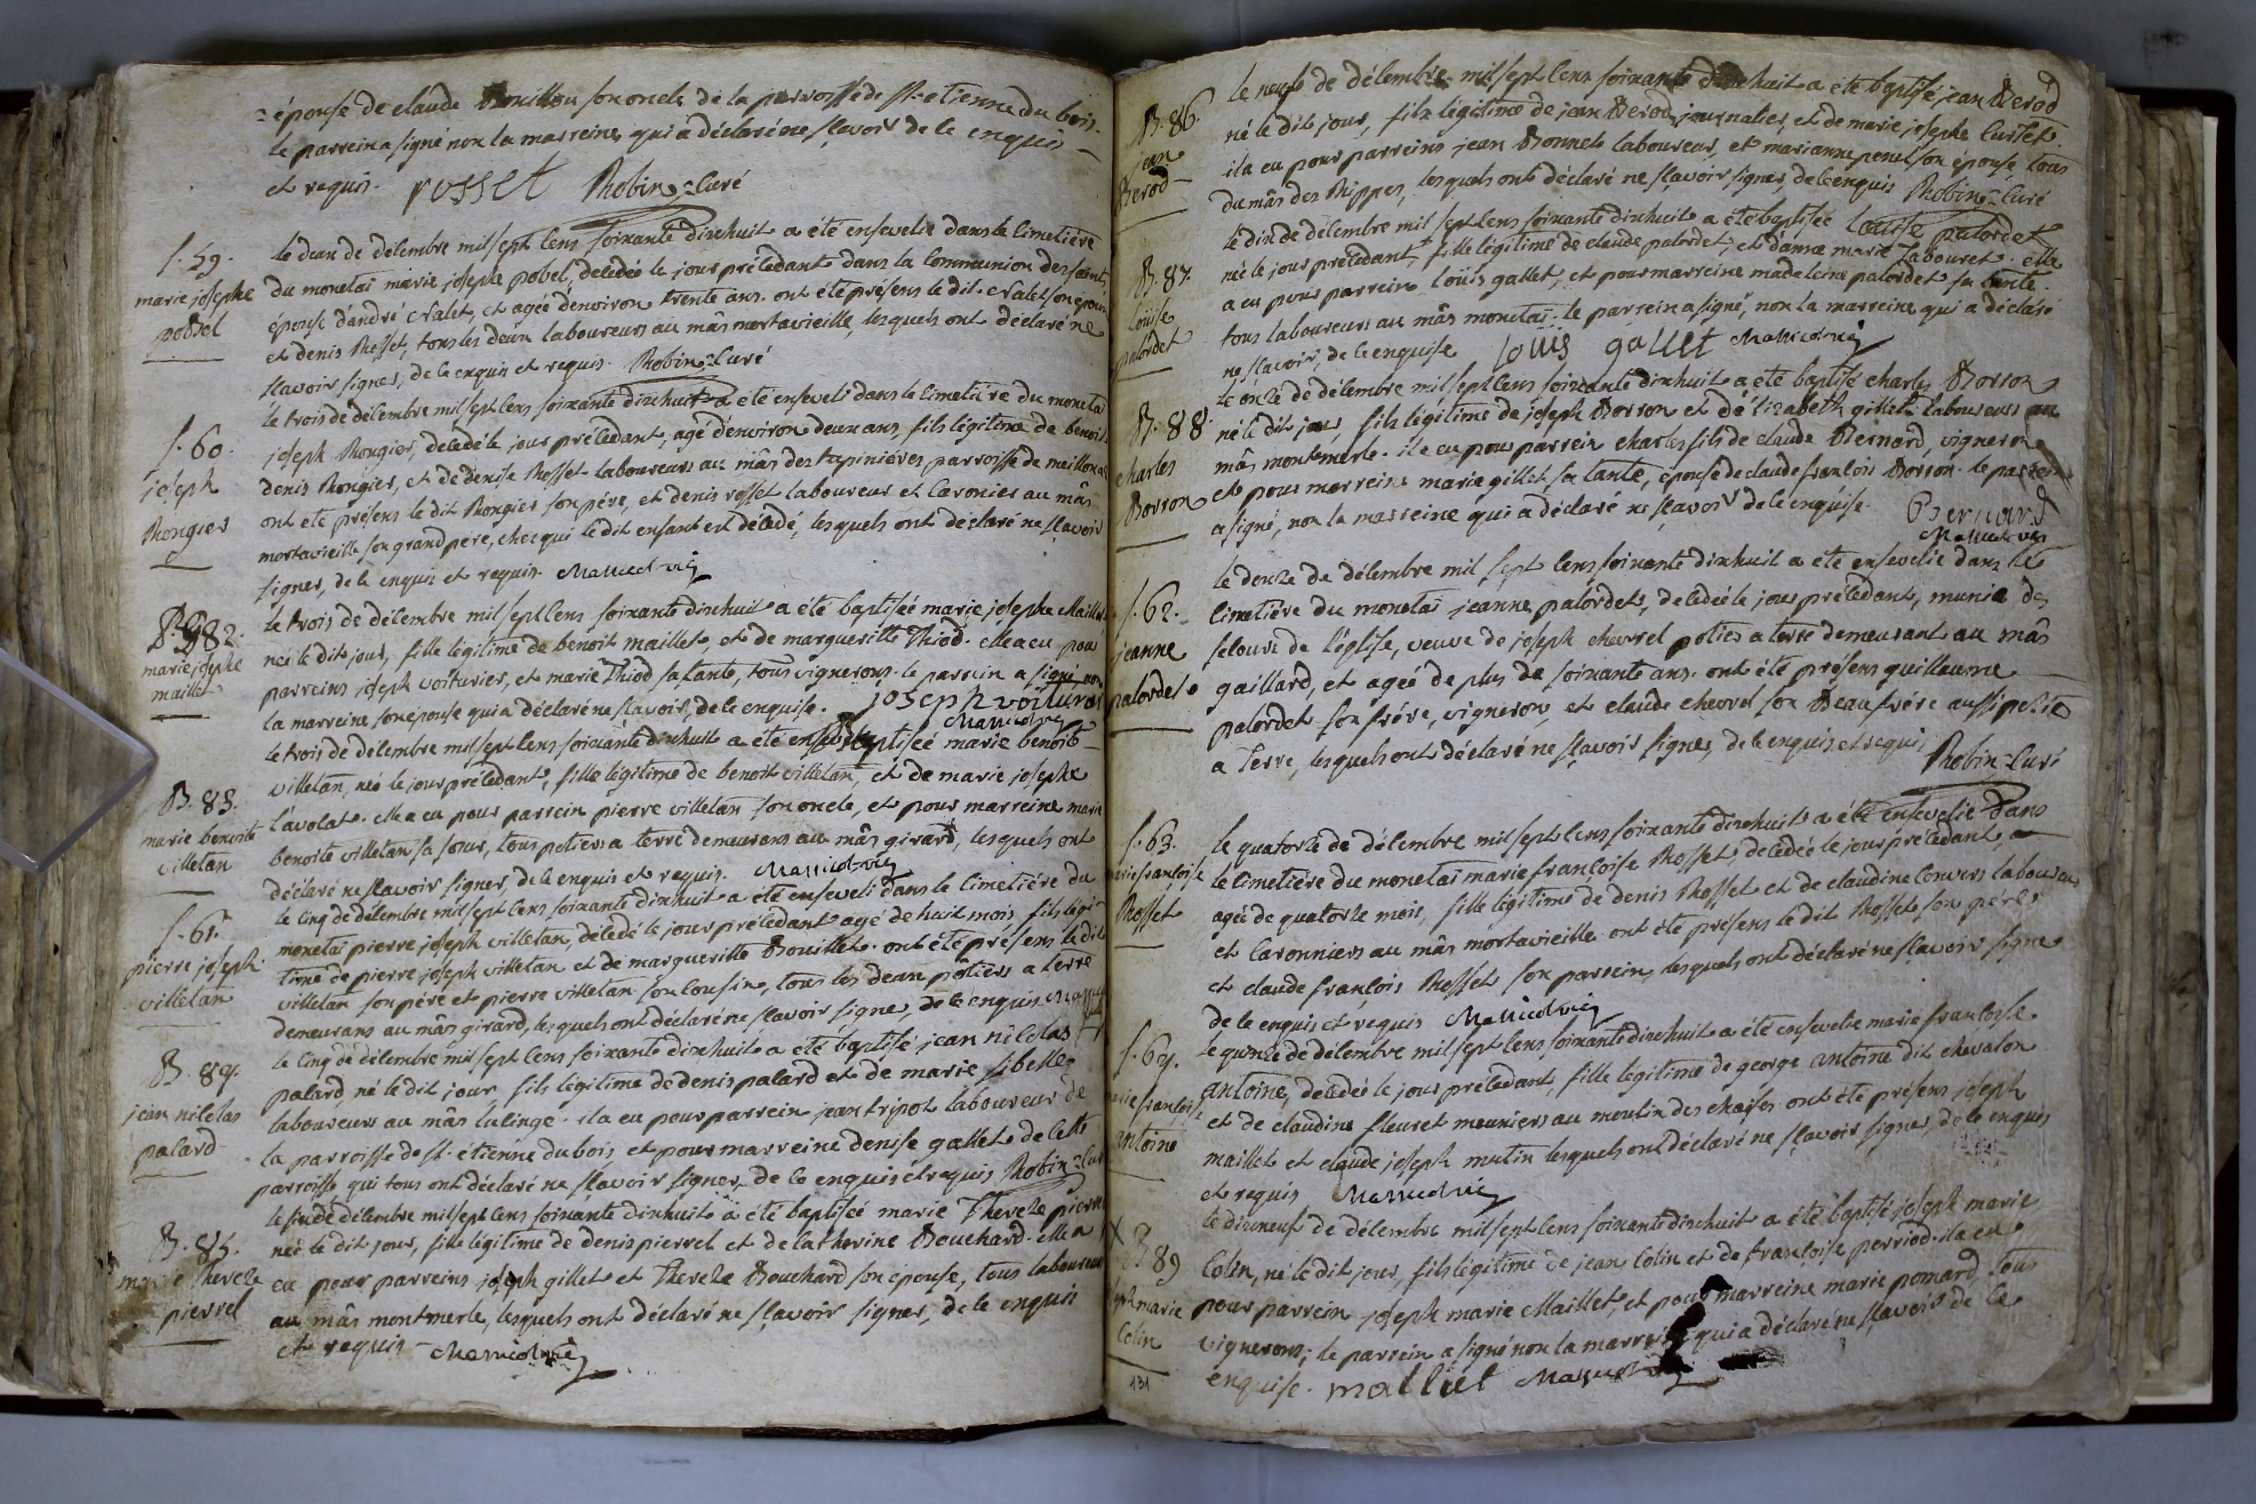 épouse de claude Bouillou son oncle de la parroisse de st. etienne du bois.
le parrein a signé non la marreine, qui a déclaré ne sçavoir de ce enquis
et requis. rosset Robin curé
S. 59.
marie josephe
pobel
le deux de décembre mil sept cens soixante dixhuit a été ensevelie dans le cimetiére
du monetai marie josephe pobel, décedée le jour précedant dans la communion des saints,
épouse d'andré Nalet, et agée d'environ trente ans. ont été présens le dit Nalet son epoux
et denis Rosset, tous les deux laboureurs au mâs mortavieille, lesquels ont déclaré ne
sçavoir signer, de ce enquis et requis. Robin curé
S. 60.
joseph
Rongier
le trois de décembre mil sept cens soixante dixhuit a été enseveli dans le cimetiére du monetai
joseph Rongier, décedé le jour précedant, agé d'environ deux ans, fils légitime de benoit
denis Rongier, et de denise Rosset laboureurs au mâs des tupiniéres parroisse de meillonas
ont été présens le dit Rongier son pére, et denis rosset laboureur et caronier au mâs
mortavieille son grand pere, chez qui le dit enfant est décedé, lesquels ont déclaré ne sçavoir
signer, de ce enquis et requis.
B. 82.
marie josephe
maillet
le trois de décembre mil sept cens soixante dixhuit a été baptisée marie josephe Maillet
née le dit jour, fille légitime de benoit maillet, et de margueritte Thiod. elle a eu pour
parreins joseph voiturier, et marie Thiod sa tante, tous vignerons. le parrein a signé non
la marreine son épouse qui a déclaré ne sçavoir, de ce enquise. joseph voiturier
B. 83.
marie benoite
villetan
le trois de décembre mil sept cens soixante dixhuit a été baptisée marie benoite
villetan, née le jour précedant, fille légitime de benoit villetan, et de marie josephe
l'avolat. elle a eu pour parrein pierre villetan son oncle, et pour marreine marie
benoite villetan sa sœur, tous potiers a terre demeurans au mâs girard, lesquels ont
déclaré ne sçavoir signer, de ce enquis et requis.
S. 61.
pierre joseph
villetan
le cinq de décembre mil sept cens soixante dixhuit a été enseveli dans le cimetiére du
monetai pierre joseph villetan, décedé le jour précedant agé de huit mois, fils légi-
time de pierre joseph villetan et de margueritte Bouillet. ont été présens le dit
villetan son pére et pierre villetan son cousin, tous les deux pôtiers a terre
demeurans au mâs girard, lesquels ont déclaré ne sçavoir signer, de ce enquis
B. 84.
jean nicolas
palard
le cinq de décembre mil sept cens soixante dixhuit a été baptisé jean nicolas
palard, né le dit jour, fils légitime de denis palard et de marie sibelle
laboureurs au mâs lulinge. il a eu pour parrein jean tripoz laboureur de
la parroisse de st. étienne du bois et pour marreine denise gallet de cette
parroisse, qui tous ont déclaré ne sçavoir signer, de ce enquis et requis Robin curé
B. 85.
marie Thereze
pierrel
le six de décembre mil sept cens soixante dixhuit a été baptisée marie Thereze pierrel
née le dit jour, fille légitime de denis pierrel et de catherine Bouchard. elle a
eu pour parreins joseph gillet et Thereze Bouchard son épouse, tous laboureurs
au mâs montmerle, lesquels ont déclaré ne sçavoir signer, de ce enquis
et requis
B. 86.
jean
Berod
le neuf de décembre mil sept cens soixante dixhuit a été baptisé jean Berod
né le dit jour, fils légitime de jean Berod, journalier, et de marie josephe curtet.
il a eu pour parreins jean Bonnet laboureur, et marianne penel son épouse, tous
du mâs des Rippes, lesquels ont déclaré ne sçavoir signer, de ce enquis Robin curé
B. 87.
Loüise
palordet
le dix de décembre mil sept cens soixante dixhuit a été baptisée Louise palordet
née le jour précedant, fille légitime de claude palordet, et d'anne marie Tabouret. elle
a eu pour parrein loüis gallet, et pour marreine madeleine palordet sa tante.
tous laboureurs au mâs monetai. le parrein a signé, non la marreine qui a déclaré
ne sçavoir, de ce enquise louis gallet
B. 88.
charles
Borron
le onze de décembre mil sept cens soixante dixhuit a été baptisé charles Borron
né le dit jour, fils légitime de joseph Borron et d'élizabeth gillet laboureurs au
mâs montmerle. il a eu pour parrein charles fils de claude Bernard, vigneron
et pour marreine marie gillet sa tante, épouse de claude françois Borron. le parrein
a signé, non la marreine qui a déclaré ne sçavoir de ce enquise. Bernard
S. 62.
jeanne
palordet
le douze de décembre mil sept cens soixante dixhuit a été ensevelie dans le
cimetiére du monetai jeanne palordet, décedée le jour précedant, munie des
secours de l'église, veuve de joseph chevrel potier a terre demeurant au mâs
gaillard, et agée de plus de soixante ans. ont été présens guillaume
palordet son frére, vigneron, et claude chevrel son Beaufrére aussi potier
a Terre, lesquels ont déclaré ne sçavoir signer, de ce enquis et requis
Robin curé
S. 63.
marie françoise
Rosset
le quatorze de décembre mil sept cens soixante dixhuit a été ensevelie dans
le cimetiére du monetai marie françoise Rosset, décedée le jour précedant,
agée de quatorze mois, fille légitime de denis Rosset et de claudine convers laboureurs
et caronniers au mâs mortavieille. ont été présens le dit Rosset son pére
et claude françois Rosset son parrein, lesquels ont déclaré ne sçavoir signer
de ce enquis et requis
S. 64.
marie françoise
antoine
le quinze de décembre mil sept cens soixante dixhuit a été ensevelie marie françoise
antoine, décedée le jour précedant, fille légitime de george antoine dit chevalon
et de claudine fleuret meuniers au moulin des chaises. ont été présens joseph
maillet et claude joseph mutin lesquels ont déclaré ne sçavoir signer, de ce enquis
et requis
B. 89
joseph marie
Colin
le dixneuf de décembre mil sept cens soixante dixhuit a été baptisé joseph marie
Colin, né le dit jour, fils légitime de jean Colin et de françoise perriod. il a eu
pour parrein joseph marie Maillet, et pour marreine marie pomard, tous
vignerons; le parrein a signé non la marreine qui a déclaré ne sçavoir de ce
enquise. malliet
131